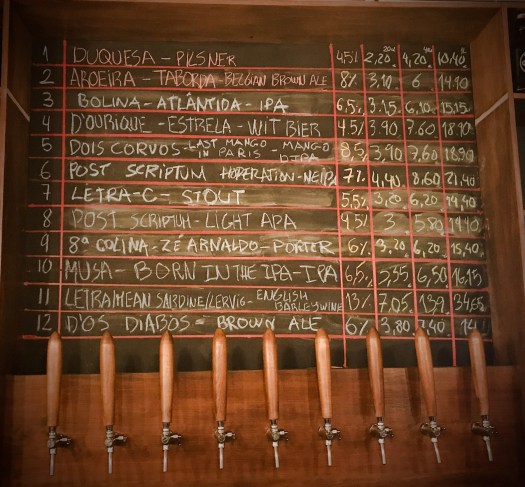 1 DUQUESA - PILSNER 4,5% 2,20 4,20 10,40
2 AROEIRA - TABORDA - BELGIAN BROWN ALE 8% 3,10 6 14,10
3 BOLINA - ATLÂNTIDA - IPA 6,5% 3,15 6,10 15,15
4 D'OURIQUE - ESTRELA - WIT BIER 4.5% 3.90 7.60 18.90
5 DOIS CORVOS - LAST MANGO IN PARIS - MANGO DIPA 8,5% 3,90 7,60 18,90
6 POST SCRIPTUM - NEIPA 7% 4,40 8.60 21,40
7 LETRA - C - STOUT 5,5% 6,20
8 POST SCRIPTUM - LIGHT APA 4,5% 3 5,80
9 8ª COLINA - ZÉ ARNALDO - PORTER 6% 3,20 6,20 15,40
10 MUSA - BORN IN THE IPA - IPA 6,5% 3,35 6,50 16,15
11 LETRA/MEAN SARDINE/LERVIG - ENGLISH BARLEYWINE 13% 7,05 13,9 34,65
12 D'OS DIABOS - BROWN ALE 6% 3,80 7,40